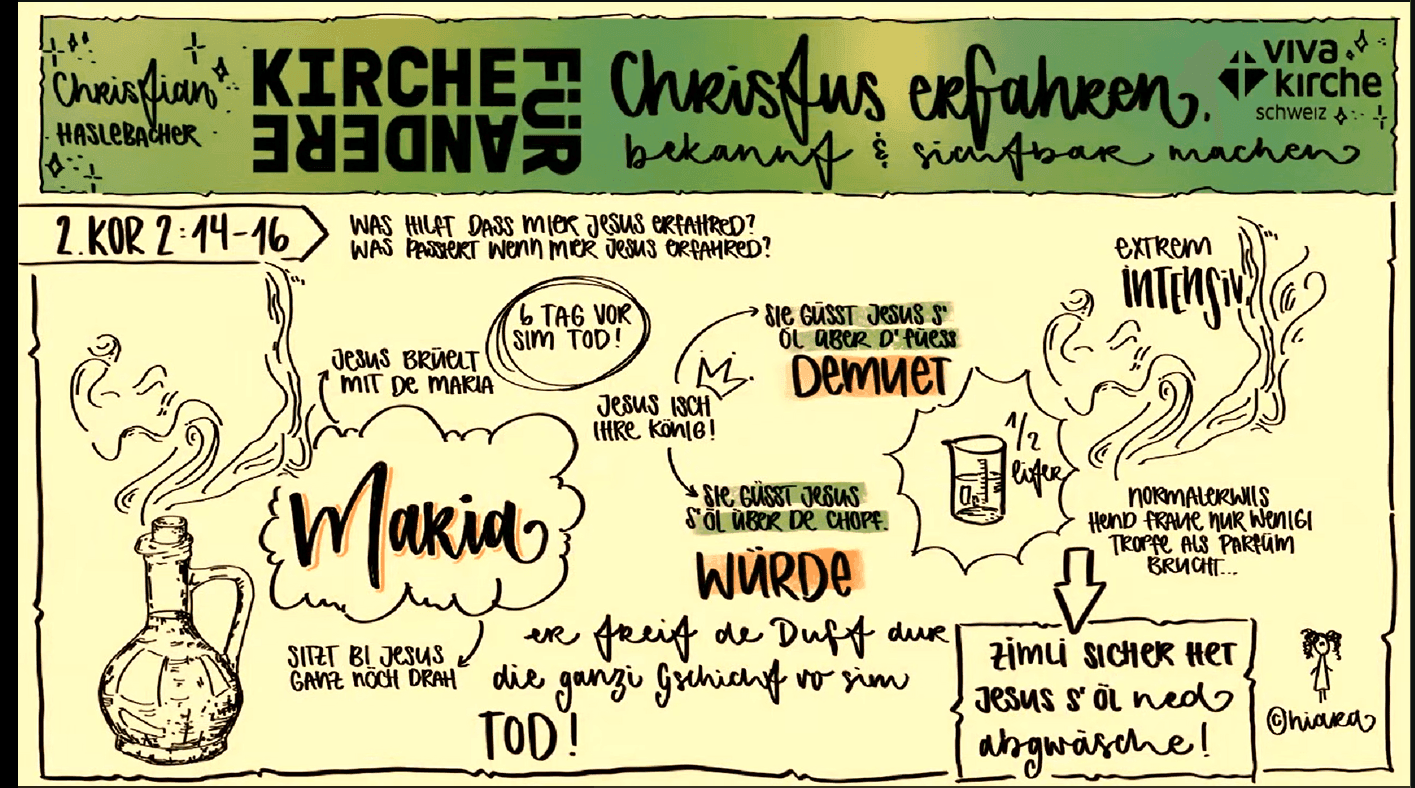 Christian
HASLEBACHER
KIRCHE
FÜR
ANDERE
Christus erfahren,
bekannt & sichtbar machen
viva
kirche
schweiz
2. KOR 2:14-16
WAS HILFT DASS MIER JESUS ERFAHRED?
WAS PASSIERT WENN MIER JESUS ERFAHRED?
EXTREM
INTENSIV
6 TAG VOR
SIM TOD!
SIE GÜSST JESUS S'
ÖL ÜBER D'FÜESS
DEMUET
JESUS BRÜELT
MIT DE MARIA
JESUS ISCH
IHRE KÖNIG!
1/2
liter
Maria
SIE GÜSST JESUS
S'ÖL ÜBER DE CHOPF.
WÜRDE
NORMALERWIIS
HEND FRAUE NUR WENIGI
TROPFE ALS PARFÜM
BRUCHT...
SITZT BI JESUS
GANZ NÖCH DRAH
er treit de Duft dur
die ganzi Gschicht vo sim
TOD!
ZIMLI SICHER HET
JESUS S'ÖL ned
abgwäsche!
©hiara